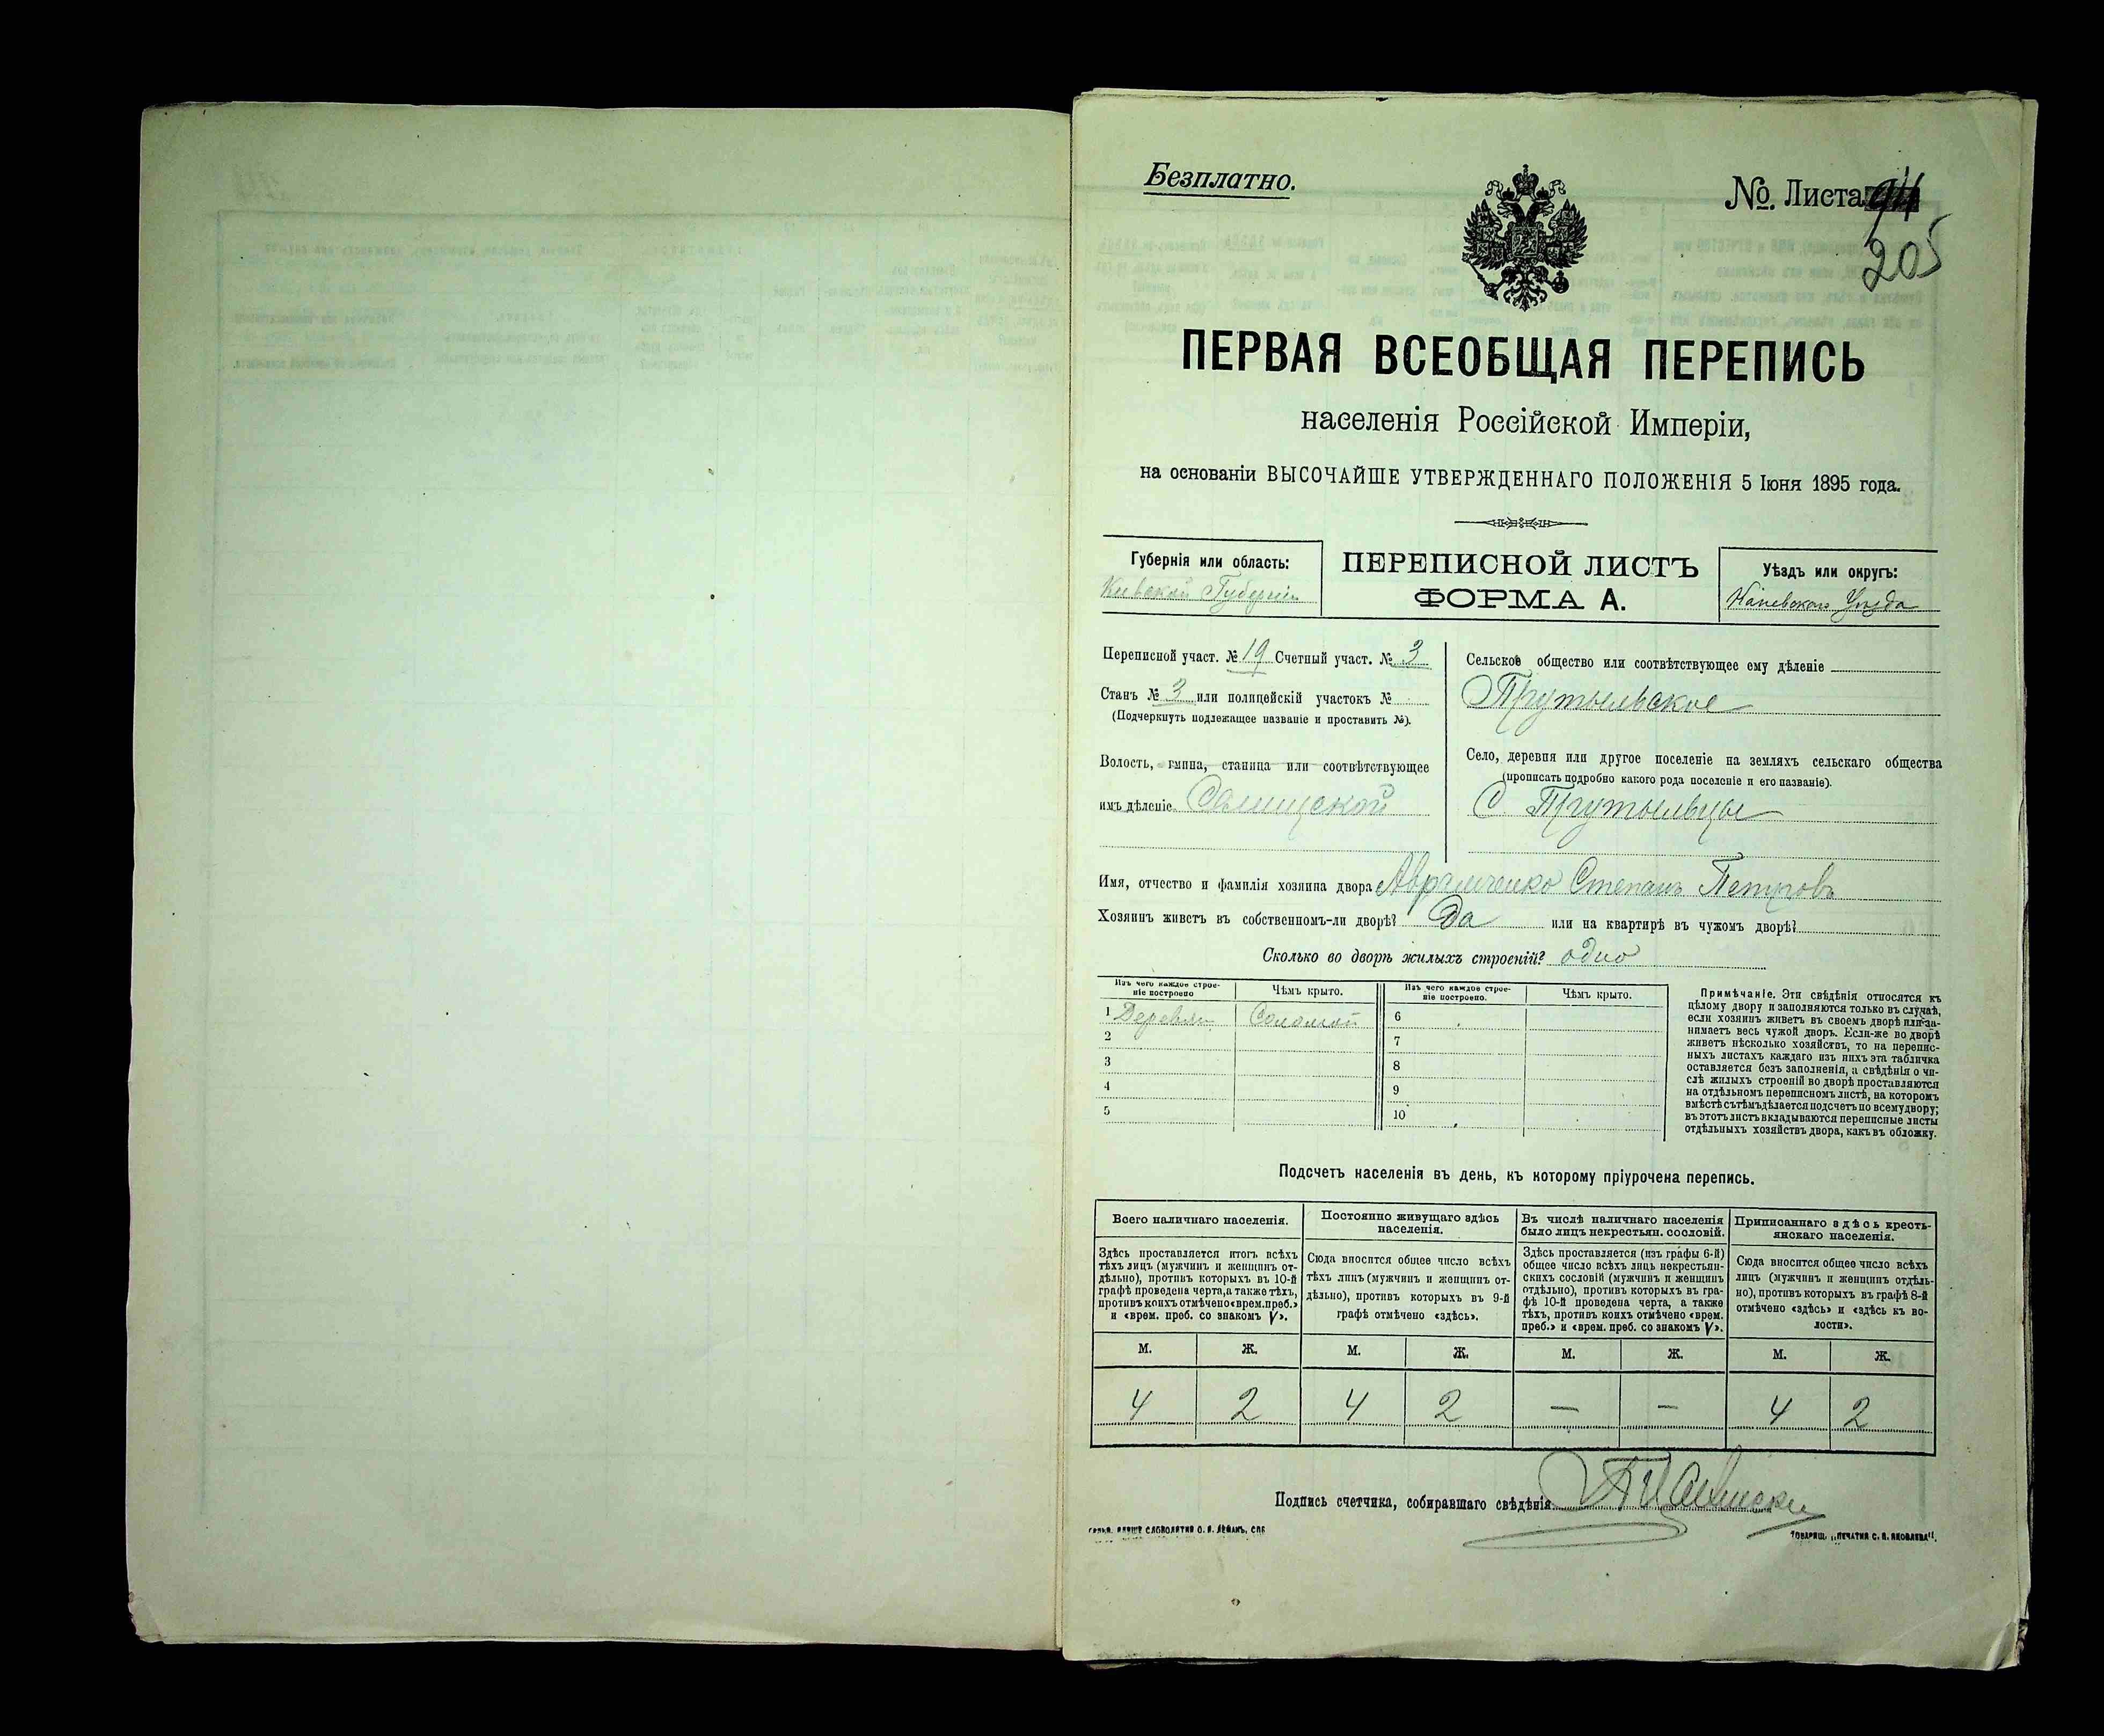 Безплатно.
№. Листа 94
205
ПЕРВАЯ ВСЕОБЩАЯ ПЕРЕПИСЬ
населенія Россійской Имперіи,
на основаніи ВЫСОЧАЙШЕ УТВЕРЖДЕННАГО ПОЛОЖЕНІЯ 5 Іюня 1895 года.
Губернія или область:
Кіевской Губерніи
ПЕРЕПИСНОЙ ЛИСТЪ
ФОРМА А.
Уѣздъ или округъ:
Каневскаго Уѣзда
Переписной участ. № 19 Счетный участ. № 3
Станъ № 3 или полицейскій участокъ №
(Подчеркнуть подлежащее названіе и проставить №).
Волость, гмина, станица или соотвѣтствующее
имъ дѣленіе
Сельское общество или соотвѣтствующее ему дѣленіе
Прутыльское
Село, деревня или другое поселеніе на земляхъ сельскаго общества
(прописать подробно какого рода поселеніе и его названіе).
С Прутыльцы
Имя, отчество и фамилія хозяина двора Степанъ Петровъ
Хозяинъ живетъ въ собственномъ-ли дворѣ? Да или на квартирѣ въ чужомъ дворѣ?
Сколько во дворѣ жилыхъ строеній? одно
Изъ чего каждое строе-
ніе построено
Чѣмъ крыто.
Изъ чего каждое строе-
ніе построено.
Чѣмъ крыто.
1 Деревян Соломой 6
2 7
3 8
4 9
5 10
Примѣчаніе. Эти свѣдѣнія относятся къ
цѣлому двору и заполняются только въ случаѣ,
если хозяинъ живетъ въ своемъ дворѣ или за-
нимаетъ весь чужой дворъ. Если-же во дворѣ
живетъ нѣсколько хозяйствъ, то на перепис-
ныхъ листахъ каждаго изъ нихъ эта табличка
оставляется безъ заполненія, а свѣдѣнія о чи-
слѣ жилыхъ строеній во дворѣ проставляются
на отдѣльномъ переписномъ листѣ, на которомъ
вмѣстѣ съ тѣмъ дѣлается подсчетъ по всему двору;
въ этотъ листъ вкладываются переписные листы
отдѣльныхъ хозяйствъ двора, какъ въ обложку.
Подсчетъ населенія въ день, къ которому пріурочена перепись.
Всего наличнаго населенія.
Здѣсь проставляется итогъ всѣхъ
тѣхъ лицъ (мужчинъ и женщинъ от-
дѣльно), противъ которыхъ въ 10-й
графѣ проведена черта, а также тѣхъ,
противъ коихъ отмѣчено «врем. преб.»
и «врем. преб. со знакомъ V».
Постоянно живущаго здѣсь
населенія.
Сюда вносится общее число всѣхъ
тѣхъ лицъ (мужчинъ и женщинъ от-
дѣльно), противъ которыхъ въ 9-й
графѣ отмѣчено «здѣсь».
Въ числѣ наличнаго населенія
было лицъ некрестьян. сословій.
Здѣсь проставляется (изъ графы 6-й)
общее число всѣхъ лицъ некрестьян-
скихъ сословій (мужчинъ и женщинъ
отдѣльно), противъ которыхъ въ гра-
фѣ 10-й проведена черта, а также
тѣхъ, противъ коихъ отмѣчено «врем.
преб.» и «врем. преб. со знакомъ V».
Приписаннаго здѣсь кресть-
янскаго населенія.
Сюда вносится общее число всѣхъ
лицъ (мужчинъ и женщинъ отдѣль-
но), противъ которыхъ въ графѣ 8-й
отмѣчено «здѣсь» и «здѣсь къ во-
лости».
М. Ж. М. Ж. М. Ж. М. Ж.
4 2 4 2 — — 4 2
Подпись счетчика, собиравшаго свѣдѣнія
СЛОВОЛИТНЯ О. И. ЛЕМАНЪ, СПБ
ТОВАРИЩ. „ПЕЧАТНЯ С. П. ЯКОВЛЕВА".